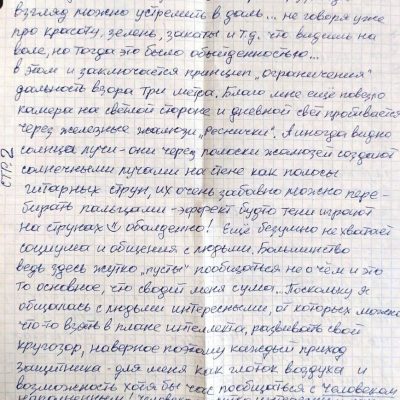 взгляд можно устремить в даль... не говоря уже
про красоту, зелень, закаты и т.д. что видишь на
воле, но тогда это было обыденностью...
в этом и заключается принцип „ограничения"
дальность взора три метра. Благо мне ещё повезло
камера на светлой стороне и дневной свет пробивается
через железные жалюзи „реснички". А иногда видно
солнца лучи - они через полоски жалюзей создают
солнечными лучами на стене как полосы
гитарных струн, их очень забавно можно пере-
бирать пальцами - эффект будто тени играют
на струнах обалденно! Ещё безумно не хватает
социума и общения с людьми, большинство
ведь здесь жутко „пусты" пообщаться не о чем и это
то основное, что сводит меня с ума.. Поскольку я
общалась с людьми интересными, от которых можно
что-то взять в плане интеллекта, развивать свой
кругозор, наверное поэтому каждый приход
защитника - для меня как глоток воздуха и
возможность хотя бы час пообщаться с человеком
стр. 2